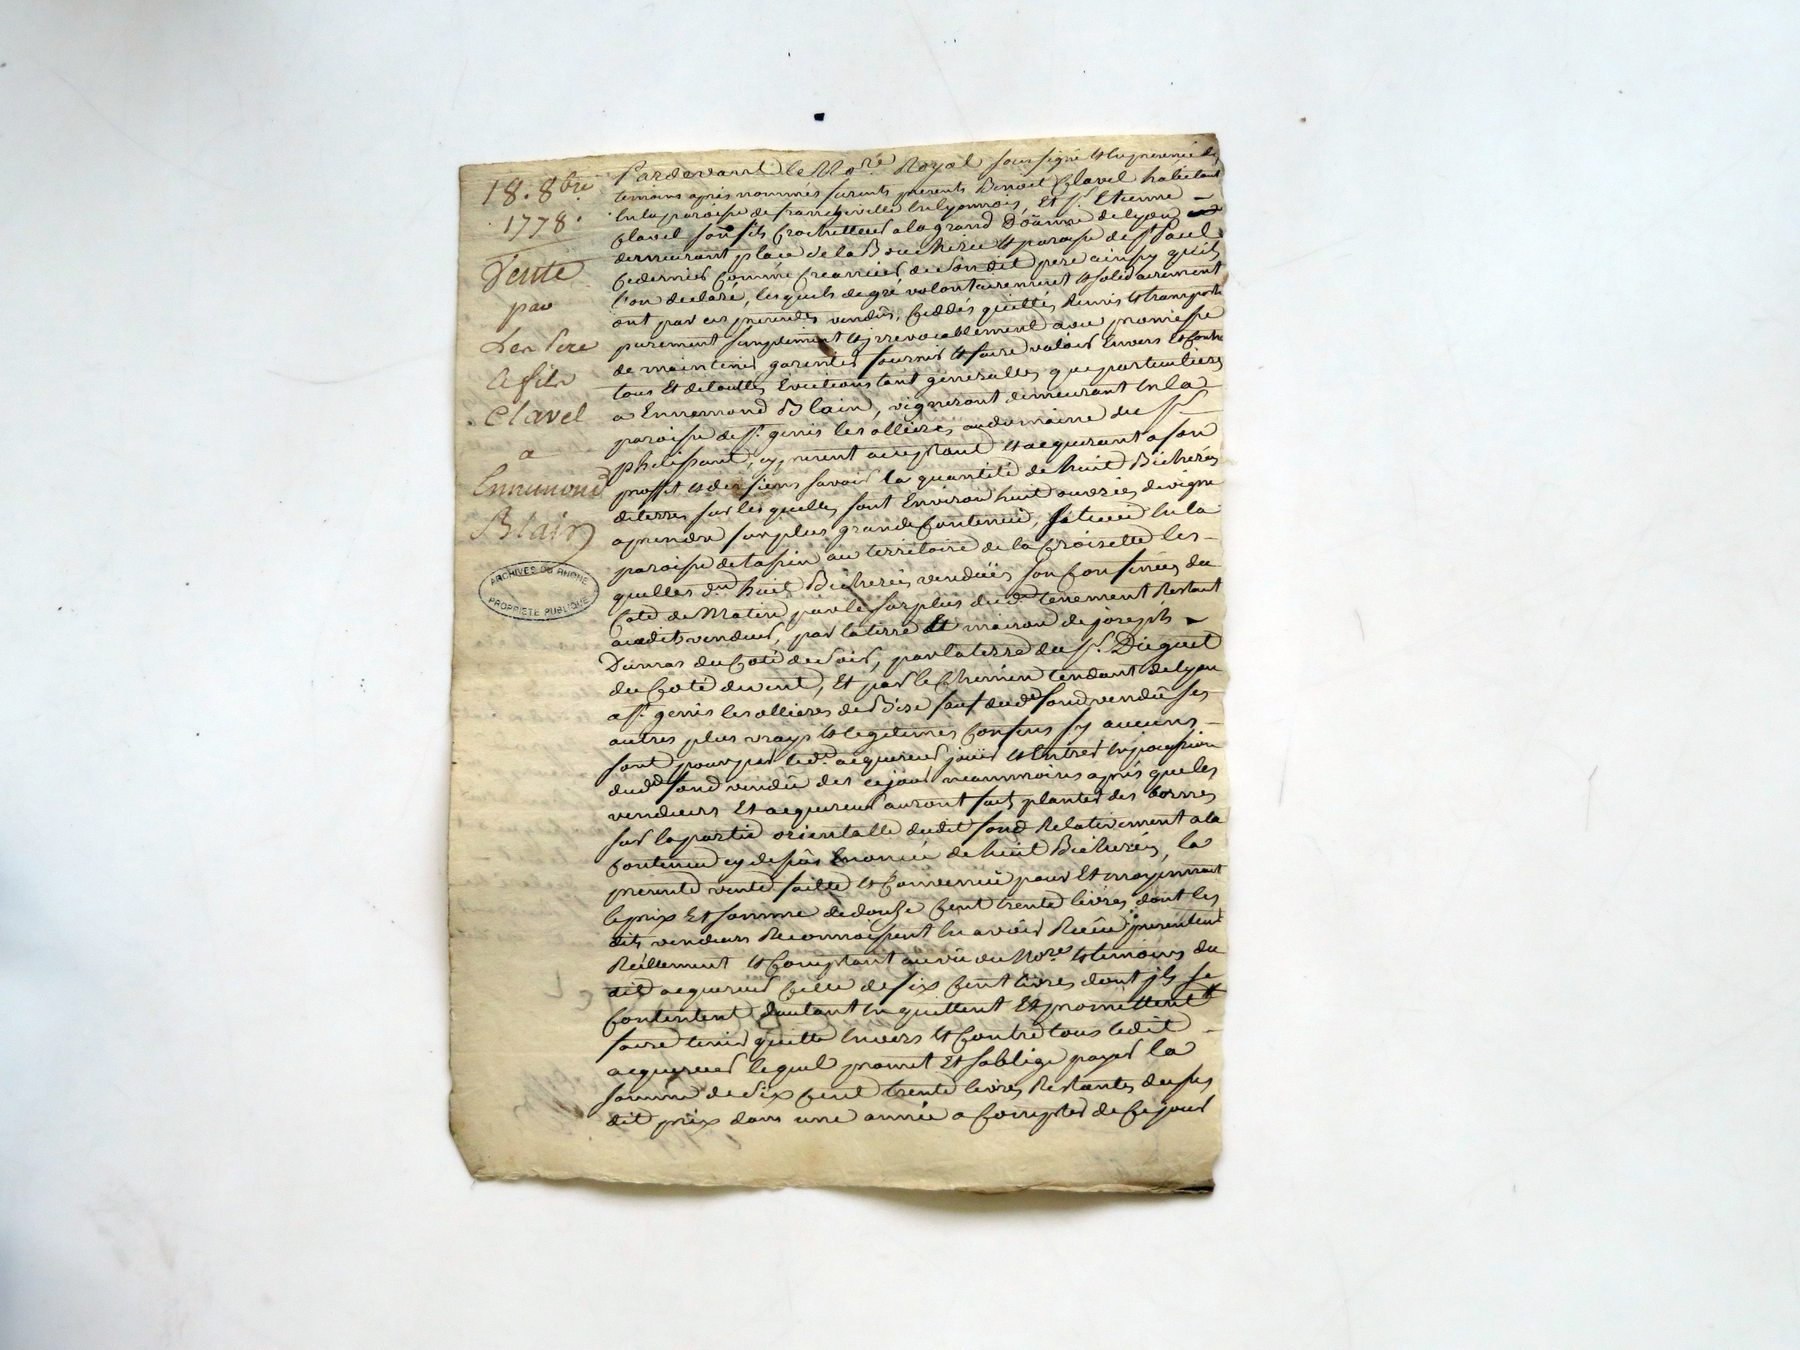 18. 8bre
1778.
Vente
par
Les Pere
& fils
Clavel
a
Ennemond
Blain
ARCHIVES DU RHONE
PROPRIETE PUBLIQUE
Pardevant le Nore. Royal soussigné & en presence des
temoins apres nommés furents presents Benoit Clavel habitant
en la paroisse de francheville en lyonnois, Et Sr. Etienne
Clavel son fils Crochetteur a la grand Doüanne de lyon
demeurant place de la Boucherie & paroisse de St Paul
Ce dernier Comme Creancier de Son dit pere ainsy quils
l'on declaré, lesquels de gré volontairement & solidairement
ont par ces presentes vendus, Ceddés quittés Remis & transportés
purement simplement & jrrevocablement avec promesse
de maintenir garentir fournir & faire valoir Envers & Contre
tous Et de touttes Evictions tant generalles que particulieres
a Ennemond Blain, vigneront demeurant en la
paroisse de St. genis les ollieres au domaine du Sr
phelissant, cy present acceptant & acquerant a son
proffit & des siens savoir la quantité de huit Bicherées
de terres sur lesquelles sont Environ huit ouvrées de vigne
a prendre sur plus grande Contenüe, scituée en la
paroisse de tassin au territoire de la Croisette les
quelles dites huit Bicherées vendües son Confinées du
Coté de Matin par le surplus du dt tenement Restant
auxdits vendeur, par la terre Et maison de joseph
Dumas du Coté de Soir, par la terre du Sr. Duguet
du Coté du vent, Et par le Chemin tendant de lyon
a St. genis les ollieres de Bize sauf dudt fond vendû ses
autres plus vrays & legitimes Confins sy aucuns
sont pour par ledt. acquereur joüir & Entrer en possession
dudt fond vendû des ce jour neanmoins aprés que les
vendeurs Et acquereur auront fait planter des bornes
sur la partie orientalle dudit fond Relativement a la
Contenue cy dessus Enoncée de huit Bicherées, la
presente vente faitte & Convenüe pour Et moyennant
le prix Et somme de douze Cent trente livres, dont les
dits vendeurs Reconnoissent en avoir Reçu presentement
Réellement & Comptant au vû du Nore & temoins du
dit acquereur Celle de six Cent livres dont jls se
Contentent d'autant en quittent Et promettent
faire tenir quitte Envers & Contre tous ledit
acquereur lequel promet Et s'oblige payer la
somme de Six Cent trente livres Restantes du sus
dit prix dans une année a Compter de Ce jour